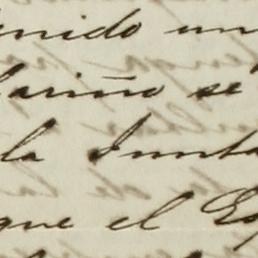 enido un
cariño se
la Junta
que el Es